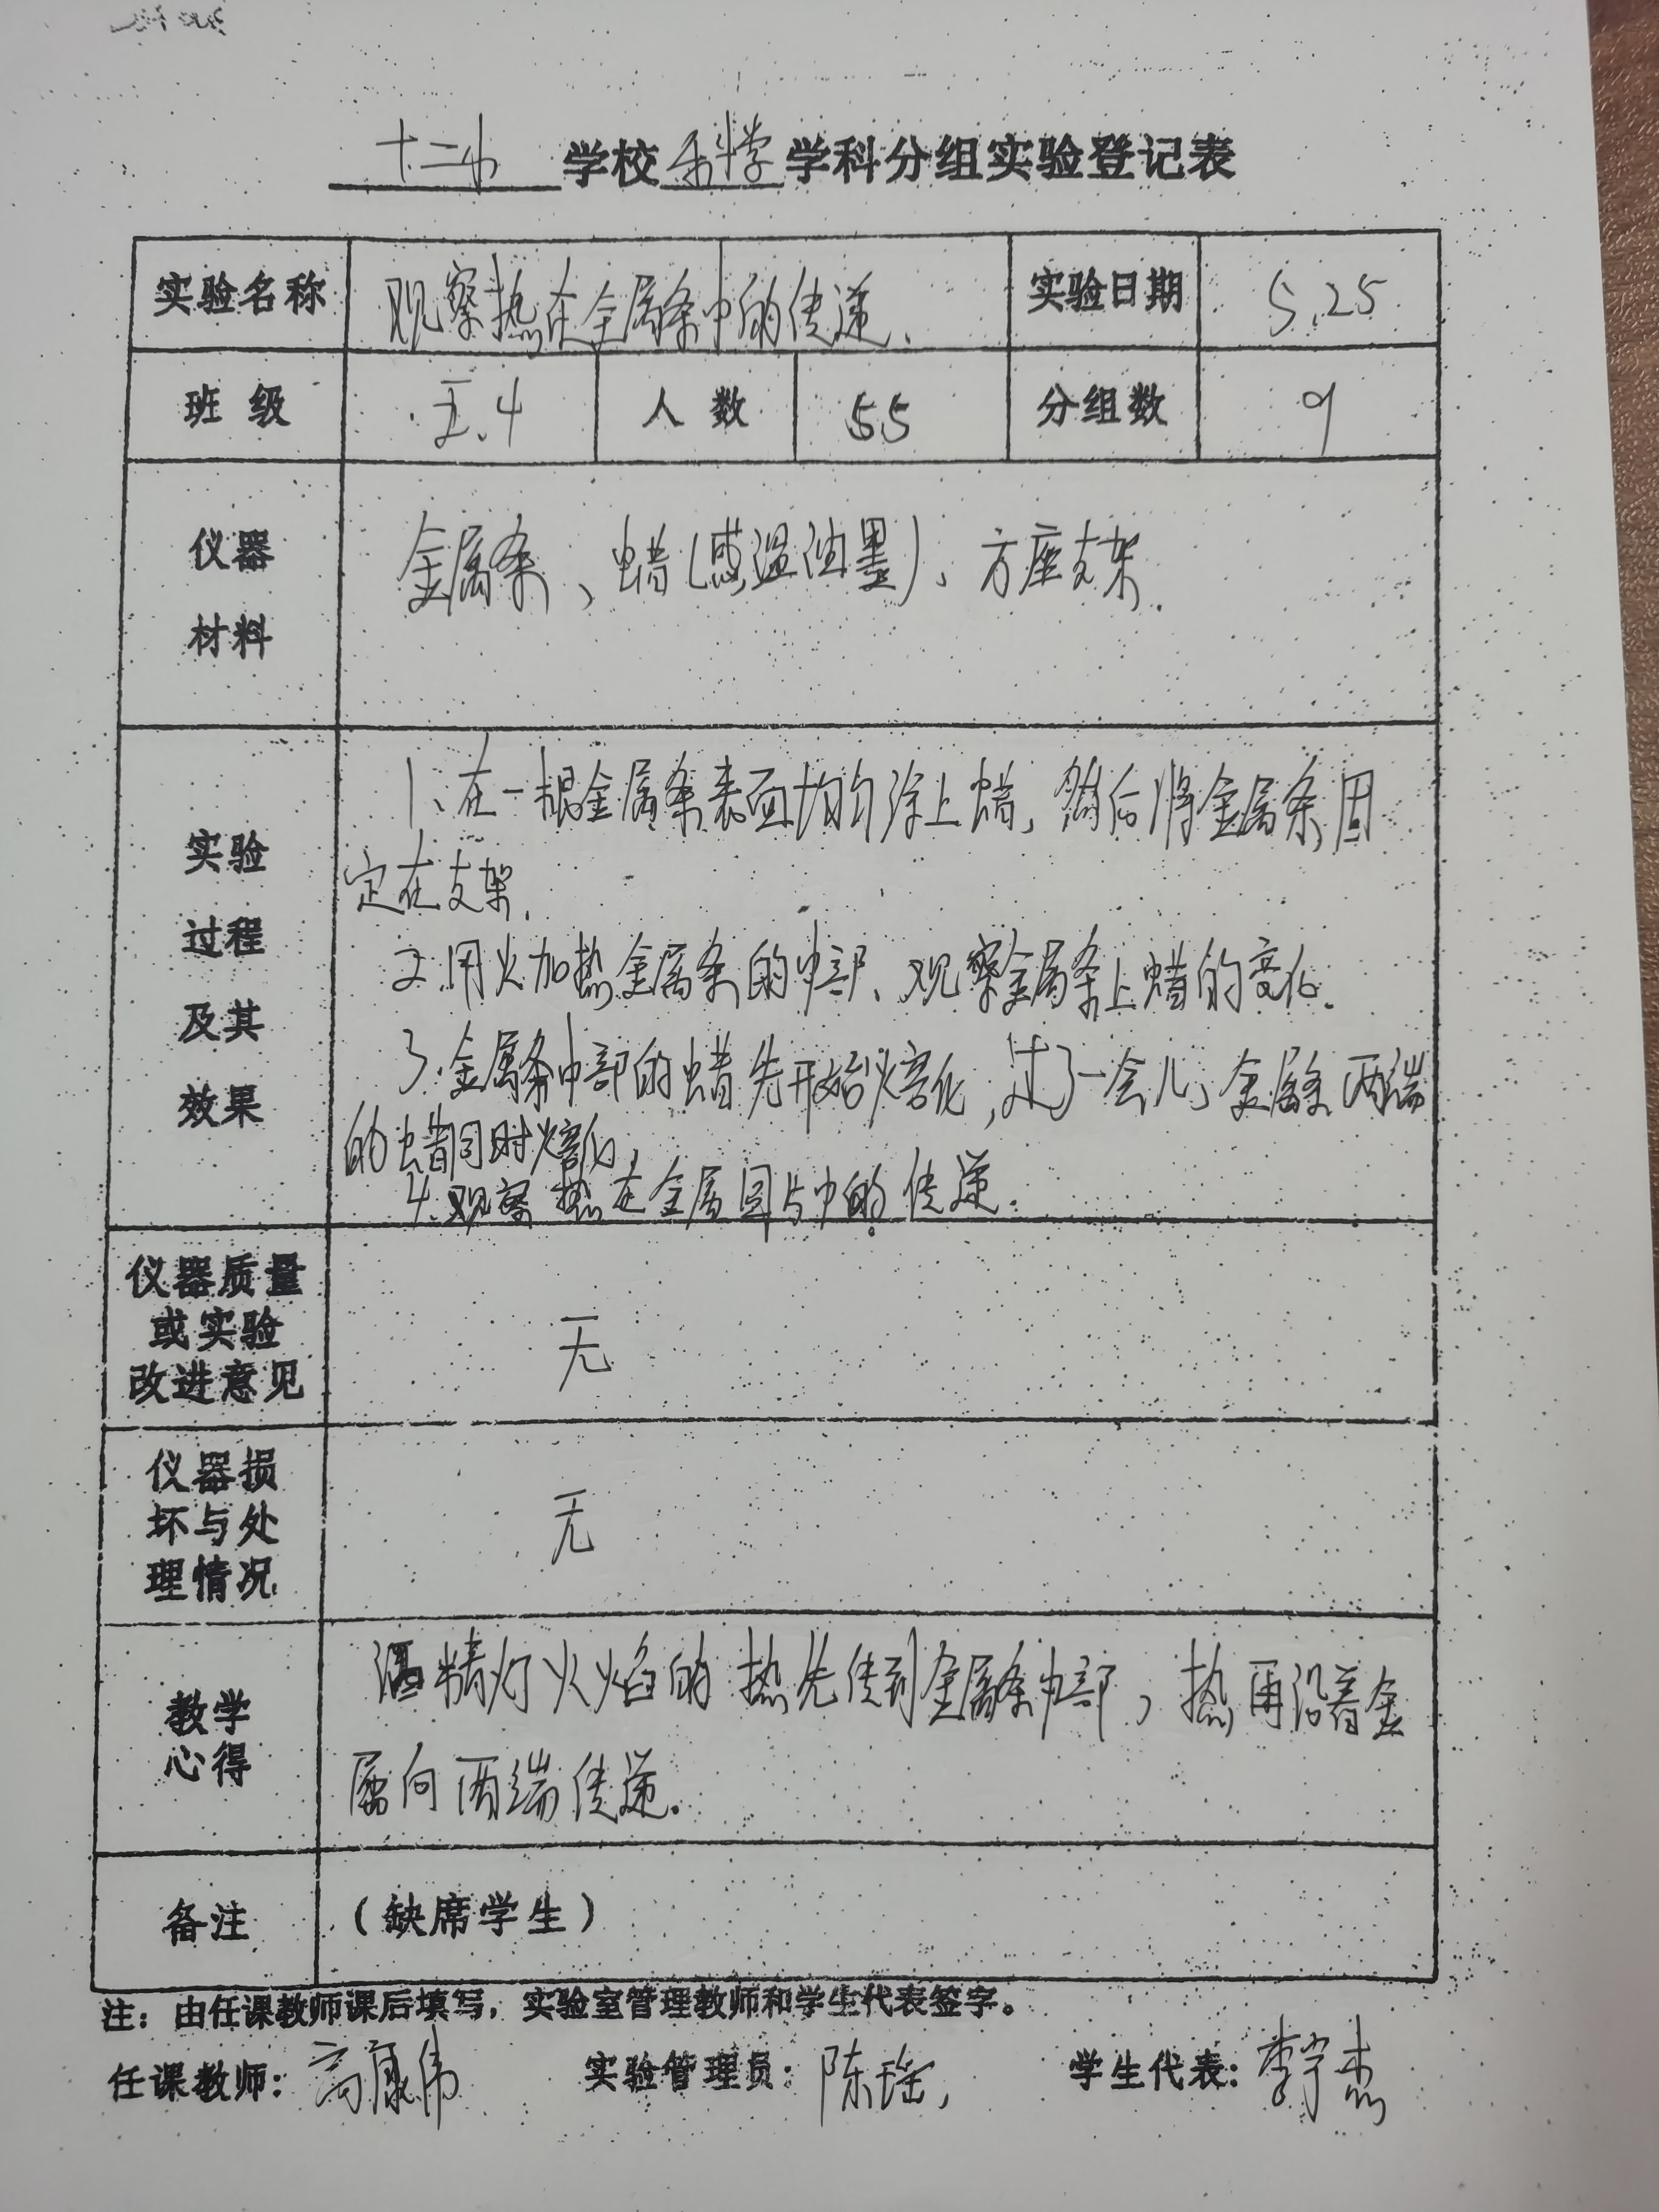 十二小学校科学学科分组实验登记表
实验名称 观察热在金属条中的传递. 实验日期 5.25
班级 五.4 人数 55 分组数 9
仪器
材料
金属条、蜡(感温油墨)、方座支架.
实验
过程
及其
效果
1、在一根金属条表面均匀涂上蜡,然后将金属条固
定在支架.
2.用火加热金属条的中部、观察金属条上蜡的变化.
3.金属条中部的蜡先开始熔化,过了一会儿,金属条两端
的蜡同时熔化,
4.观察热在金属圆片中的传递.
仪器质量
或实验
改进意见
无
仪器损
坏与处
理情况
无
教学
心得
酒精灯火焰的热先传到金属条中部,热再沿着金
属向两端传递。
备注 (缺席学生)
注:由任课教师课后填写,实验室管理教师和学生代表签字。
任课教师:高康伟 实验管理员:陈瑶 学生代表:李宇杰